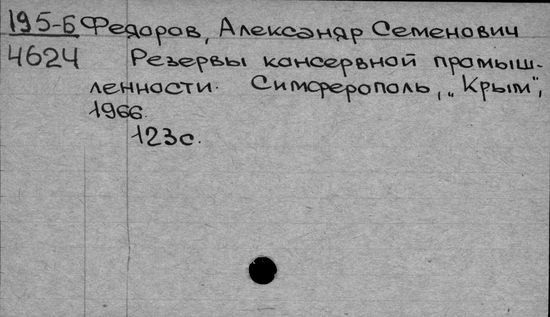 195-Б Федоров, Александр Семенович
4624 Резервы консервной промыш-
ленности. Симферополь, "Крым",
1966.
123с.